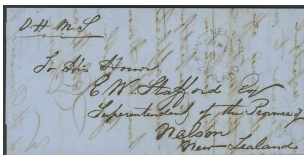 O H M S
To His Honor
E. W. Stafford Esq
Superintendent of the Province of
Nelson
New Zealand